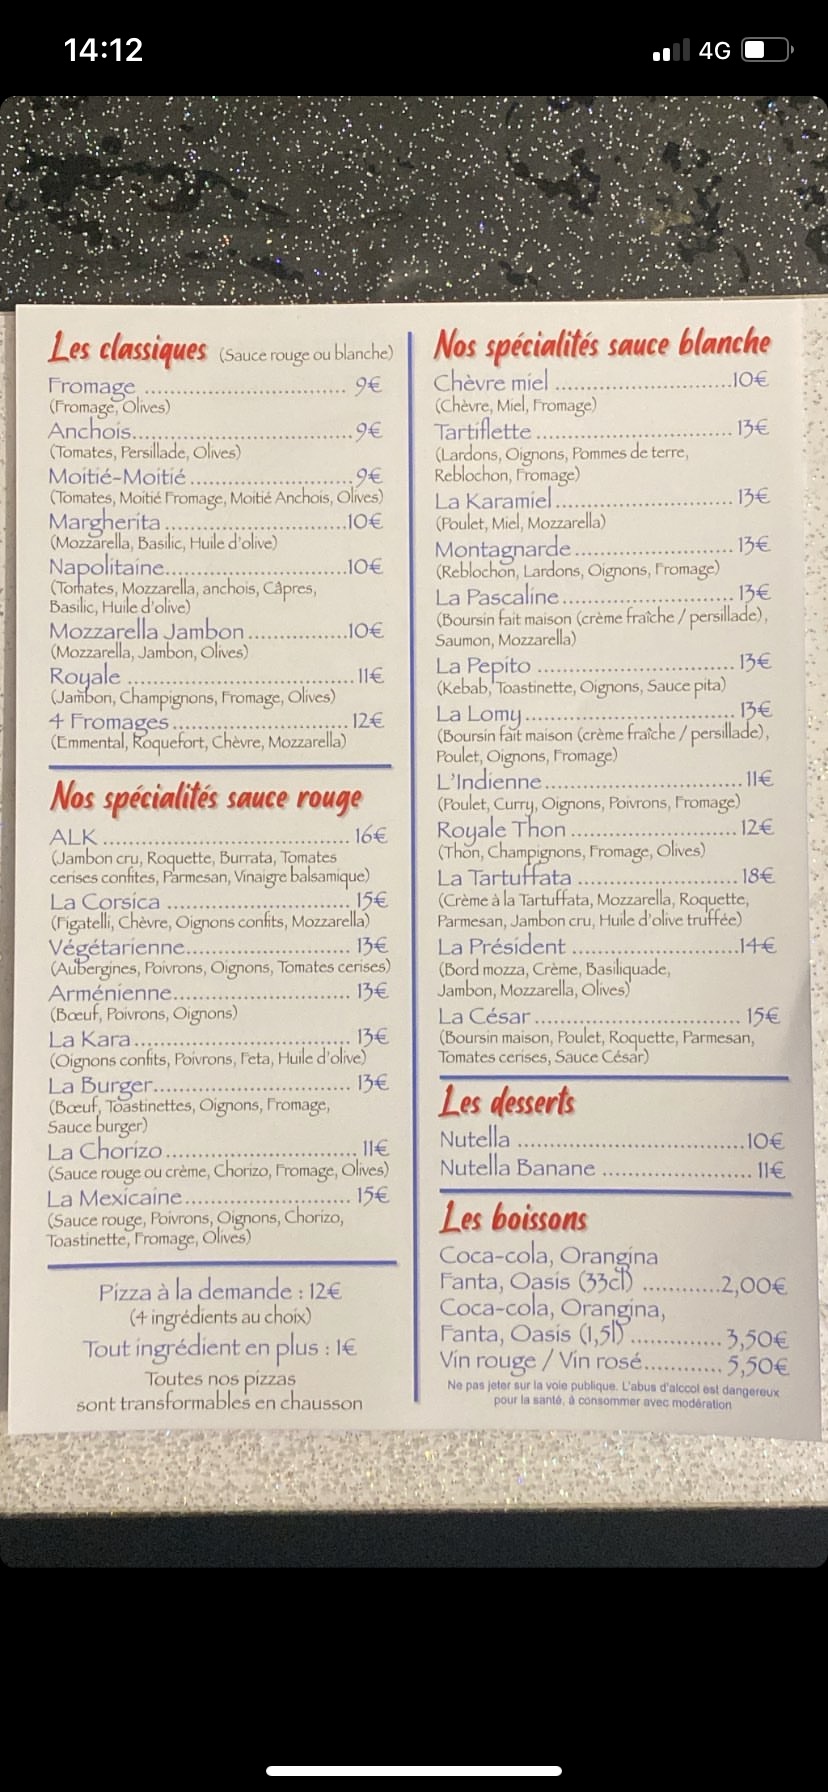 14:12
4G
Les classiques (Sauce rouge ou blanche)
Fromage .............................. 9€
(Fromage, Olives)
Anchois.................................9€
(Tomates, Persillade, Olives)
Moitié-Moitié ........................9€
(Tomates, Moitié Fromage, Moitié Anchois, Olives)
Margherita ...........................10€
(Mozzarella, Basilic, Huile d'olive)
Napolitaine...........................10€
(Tomates, Mozzarella, anchois, Câpres,
Basilic, Huile d'olive)
Mozzarella Jambon ...............10€
(Mozzarella, Jambon, Olives)
Royale ................................. 11€
(Jambon, Champignons, Fromage, Olives)
4 Fromages .......................... 12€
(Emmental, Roquefort, Chèvre, Mozzarella)
Nos spécialités sauce rouge
ALK ..................................... 16€
(Jambon cru, Roquette, Burrata, Tomates
cerises confites, Parmesan, Vinaigre balsamique)
La Corsica ............................ 15€
(Figatelli, Chèvre, Oignons confits, Mozzarella)
Végétarienne......................... 13€
(Aubergines, Poivrons, Oignons, Tomates cerises)
Arménienne........................... 13€
(Bœuf, Poivrons, Oignons)
La Kara ................................ 13€
(Oignons confits, Poivrons, Feta, Huile d'olive)
La Burger.............................. 13€
(Bœuf, Toastinettes, Oignons, Fromage,
Sauce burger)
La Chorizo ............................. 11€
(Sauce rouge ou crème, Chorizo, Fromage, Olives)
La Mexicaine ......................... 15€
(Sauce rouge, Poivrons, Oignons, Chorizo,
Toastinette, Fromage, Olives)
Pizza à la demande : 12€
(4 ingrédients au choix)
Tout ingrédient en plus : 1€
Toutes nos pizzas
sont transformables en chausson
Nos spécialités sauce blanche
Chèvre miel ...........................10€
(Chèvre, Miel, Fromage)
Tartiflette ............................. 13€
(Lardons, Oignons, Pommes de terre,
Reblochon, Fromage)
La Karamiel........................... 13€
(Poulet, Miel, Mozzarella)
Montagnarde ........................ 13€
(Reblochon, Lardons, Oignons, Fromage)
La Pascaline .......................... 13€
(Boursin fait maison (crème fraîche / persillade),
Saumon, Mozzarella)
La Pepito .............................. 13€
(Kebab, Toastinette, Oignons, Sauce pita)
La Lomy ................................ 13€
(Boursin fait maison (crème fraîche / persillade),
Poulet, Oignons, Fromage)
L'Indienne.............................. 11€
(Poulet, Curry, Oignons, Poivrons, Fromage)
Royale Thon ......................... 12€
(Thon, Champignons, Fromage, Olives)
La Tartuffata ........................ 18€
(Crème à la Tartuffata, Mozzarella, Roquette,
Parmesan, Jambon cru, Huile d'olive truffée)
La Président .........................14€
(Bord mozza, Crème, Basiliquade,
Jambon, Mozzarella, Olives)
La César ............................... 15€
(Boursin maison, Poulet, Roquette, Parmesan,
Tomates cerises, Sauce César)
Les desserts
Nutella ..................................10€
Nutella Banane ...................... 11€
Les boissons
Coca-cola, Orangina
Fanta, Oasis (33cl) ............2,00€
Coca-cola, Orangina,
Fanta, Oasis (1,5l) .............. 3,50€
Vin rouge / Vin rosé............ 5,50€
Ne pas jeter sur la voie publique. L'abus d'alccol est dangereux
pour la santé, à consommer avec modération